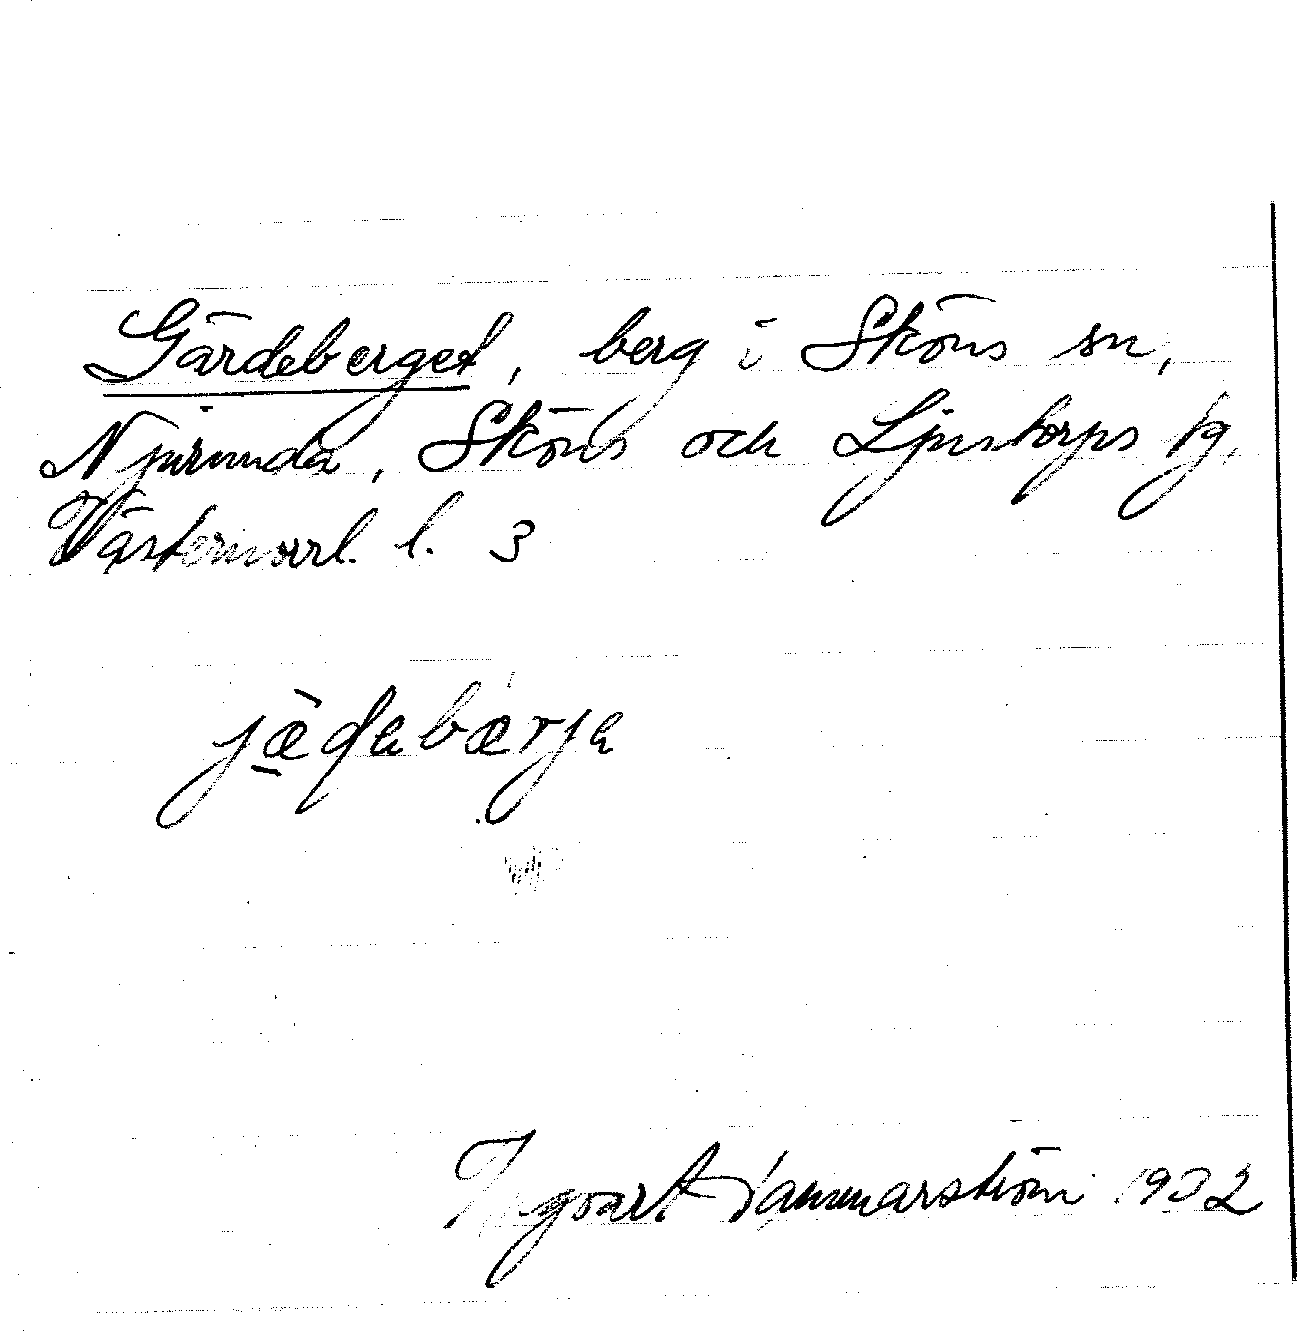 Gärdeberget, berg i Sköns sn,
Njurunda, Sköns och Ljustorps tg,
Västernorrl. l. 3
jæ̀ḍabærja
Ingvart Hammarström 1932